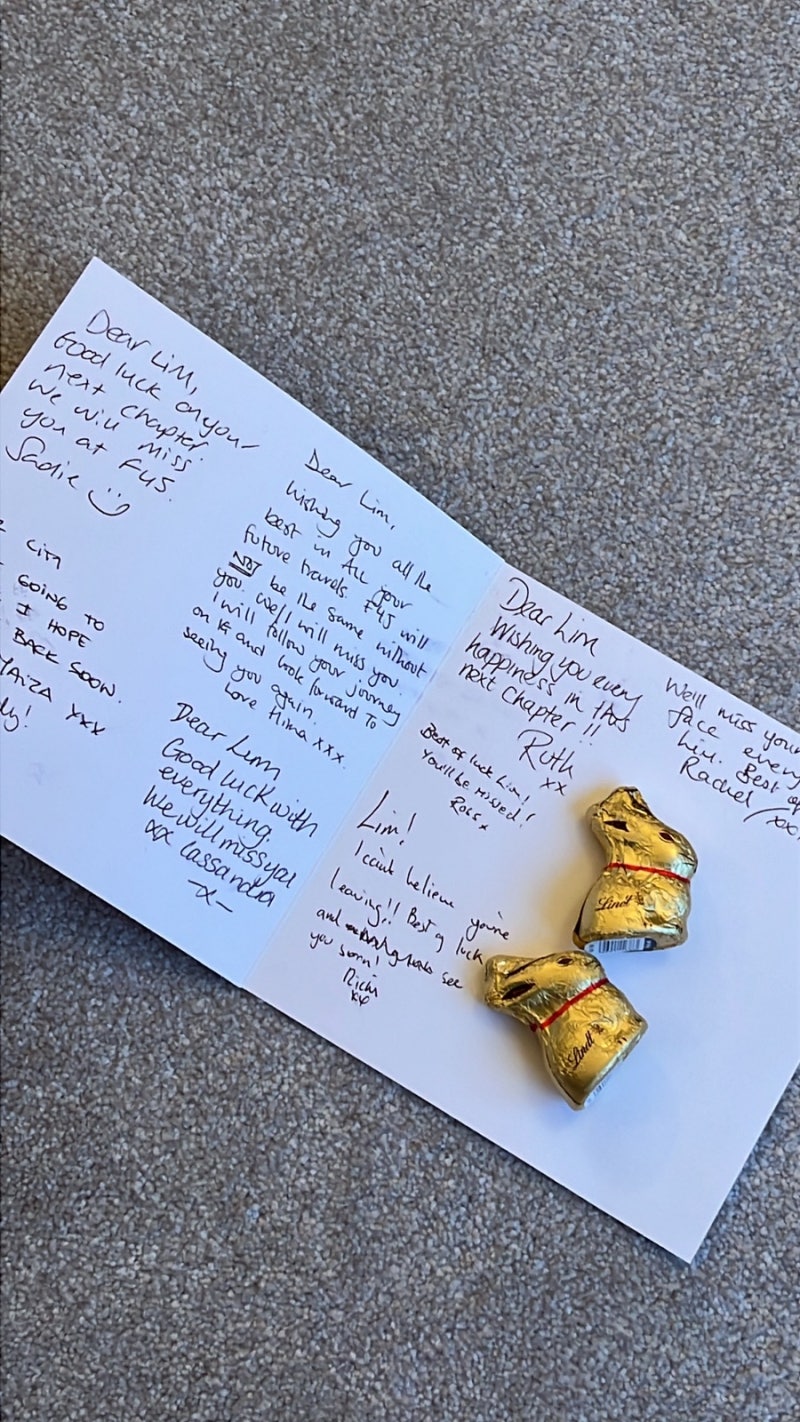 Dear Lim,
Good luck on your
next chapter.
We will miss
you at F45.
Sadie
CITY
GOING TO
I HOPE
BACK SOON.
YAIZA xxx
Dear Lim,
Wishing you all the
best in ALL your
future travels. F45 will
NOT be the same without
you. We'll will miss you.
I will follow your journey
on IG and look forward to
seeing you again.
Love Hima xxx.
Dear Lim
Good luck with
everything.
We will miss you
xx Cassandra
-x-
Dear Lim
Wishing you every
happiness in this
next chapter!!
Ruth
xx
We'll miss your
face every
Lim. Best of
Rachel xxx
Best of luck Lim!
You'll be missed!
Ross x
Lim!
I can't believe you're
leaving!! Best of luck
and see
you soon!
Richi
xx
Lindt
Lindt